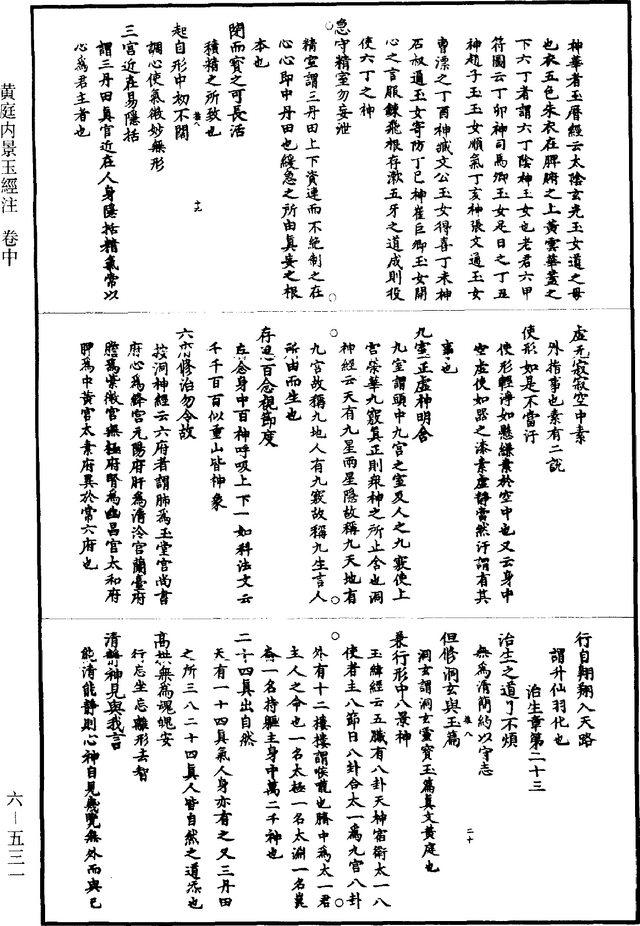 黄庭内景玉經注　卷中
六—五三一
神華者玉曆經云太陰玄光玉女道之母
也衣五色朱衣在脾腑之上黄雲華蓋之
下六丁者謂六丁陰神玉女也老君六甲
符圖云丁卯神司馬卿玉女足日之丁丑
神趙子玉玉女順氣丁亥神張文通玉女
曹漂之丁酉神臧文公玉女得喜丁未神
石叔通玉女寄防丁巳神崔巨卿玉女開
心之言服鍊飛根存漱五牙之道成則役
使六丁之神
急守精室勿妄泄
精室謂三丹田上下資運而不絶制之在
心心即中丹田也緩急之所由真妄之根
本也
閉而寳之可長活
積精之所致也
起自形中初不闊
調心使氣微妙無形
三宫近在易隱括
謂三丹田真宫近在人身隱括精氣常以
心爲君主者也
虚无寂寂空中素
外指事也素有二説
使形如是不當汙
使形輕淨如懸縑素於空中也又云身中
空虚使如器之漆素虚静當然汙謂有其
事也
九室正虚神明舍
九室謂頭中九宫之室及人之九竅使上
宫榮華九竅真正則衆神之所止舍也洞
神經云天有九星兩星隱故稱九天地有
九宫故稱九地人有九竅故稱九生言人
所由而生也
存思百念視節度
存念身中百神呼吸上下一如科法文云
千千百百似重山皆神象
六府修治勿令故
按洞神經云六府者謂肺爲玉堂宫尚書
府心爲絳宫元陽府肝爲清泠宫蘭臺府
膽爲紫微宫無極府腎爲幽昌宫太和府
脾爲中黄宫太素府異於常六府也
行自翺翔入天路
謂升仙羽化也
治生章第二十三
治生之道了不煩
無爲清簡約以守志
但修洞玄與玉篇
洞玄謂洞玄靈寳玉篇真文黄庭也
兼行形中八景神
玉緯經云五臓有八卦天神宿衛太一八
使者主八節日八卦合太一爲九宫八卦
外有十二樓樓謂喉嚨也臍中爲太一君
主人之命也一名太極一名太淵一名崑
崙一名持軀主身中萬二千神也
二十四真出自然
天有二十四真氣人身亦有之又三丹田
之所三八二十四真人皆自然之道炁也
高拱無爲魂魄安
行忘坐忘離形去智
清静神見與我言
能清能静則心神自見機覽無外而與己